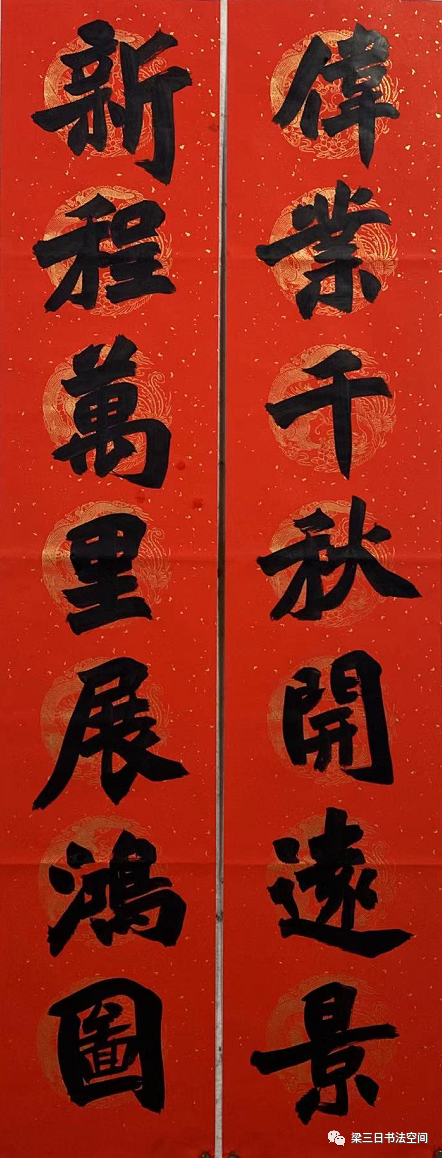 偉業千秋開遠景
新程萬里展鴻圖
梁三日书法空间